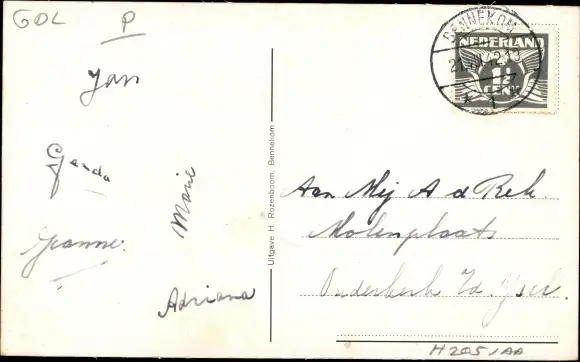 GDL P
Jan
Gerda
Marie
Jeanne.
Adriana
Uitgave H. Rozenboom, Bennekom
BENNEKOM
NEDERLAND
1½
CENT
1
Aan Mej A d Rek
Molenplaats
Ouderkerk a/d IJsel.
H2051AA